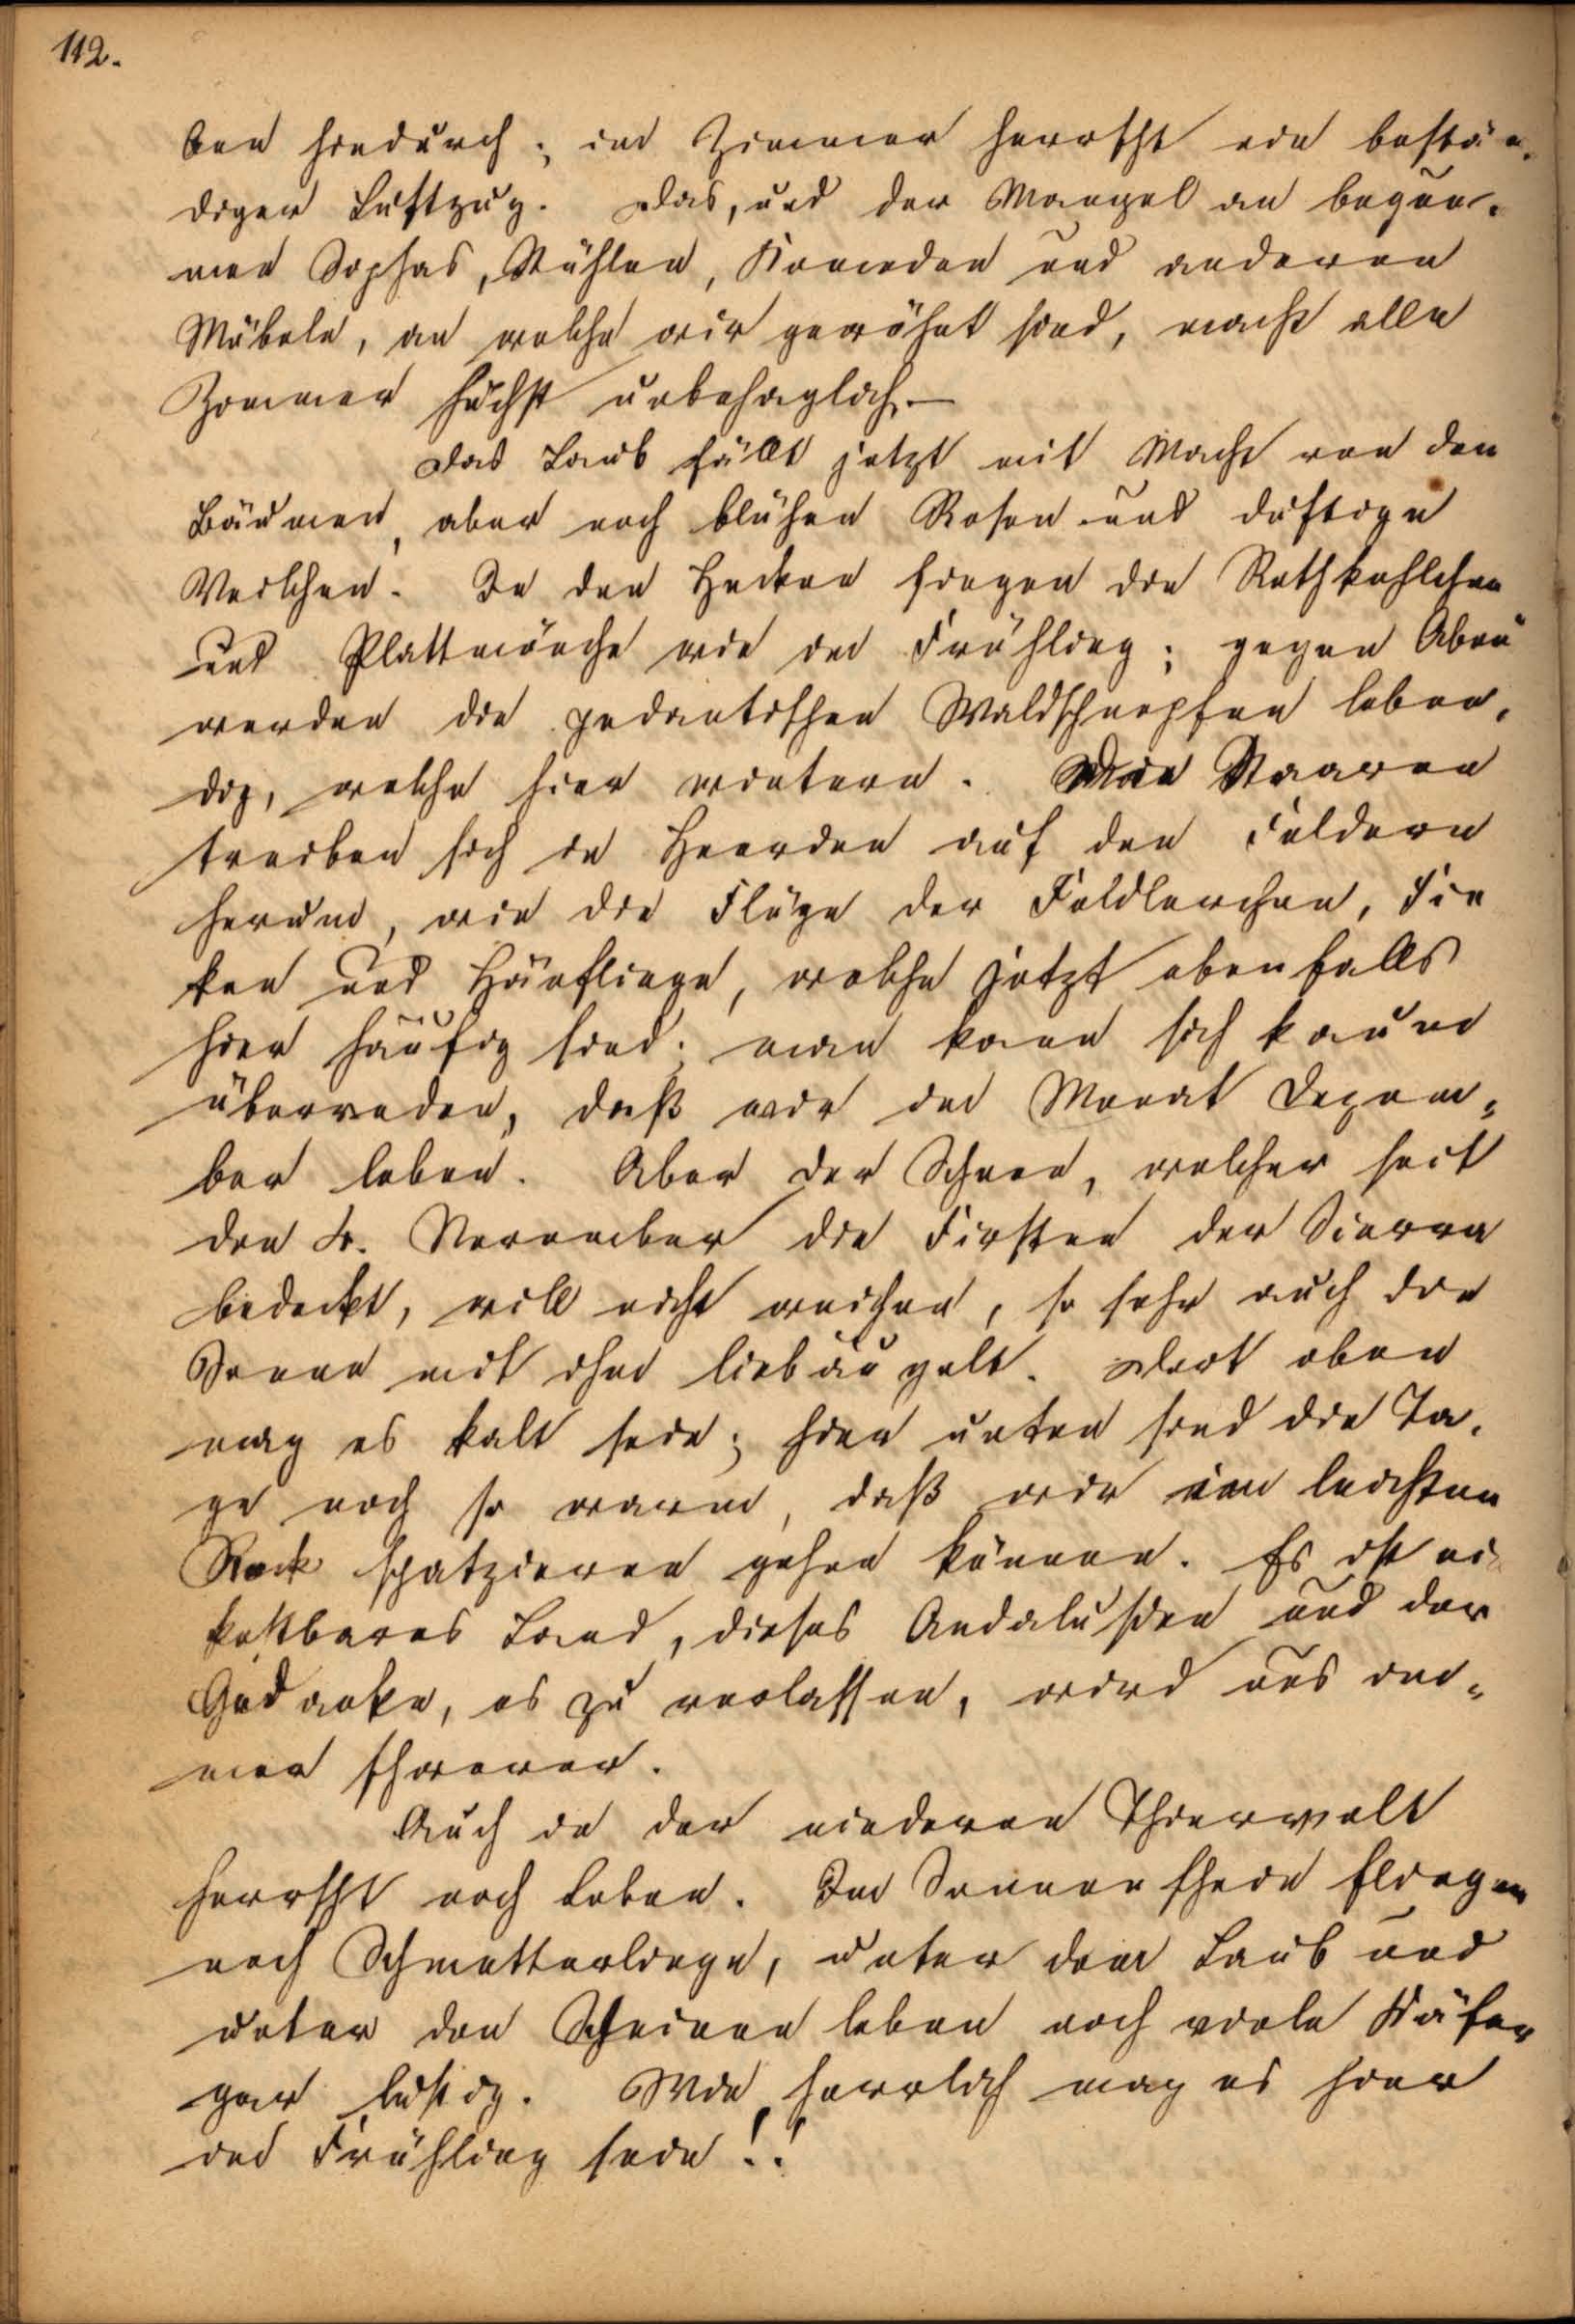 112.
ben hindurch; im Zimmer herrscht ein bestän-
diger Luftzug. Das, und der Mangel an beque-
men Sophas, Stühlen, Komoden und anderen
Möbeln, an welche wir gewöhnt sind, macht alle
Zimmer höchst unbehaglich.—
Das Laub fällt jetzt mit Macht von den
Bäumen, aber noch blühen Rosen und duftige
Veilchen. In den Hecken singen die Rothkehlchen
und Plattmönche wie im Frühling; gegen Abend
werden die pedantischen Waldschnepfen leben-
dig, welche hier wintern. Die Staaren
treiben sich in Heerden auf den Feldern
herum, wie die Flüge der Feldlerchen, Fin
ken und Hänflinge, welche jetzt ebenfalls
hier häufig sind; man kann sich kaum
überreden, daß wir im Monat Dezem-
ber leben. Aber der Schnee, welcher seit
den 4. November die Firsten der Sierra
bedeckt, will nicht weichen, so sehr auch die
Sonne mit ihm liebäugelt. Dort oben
mag es kalt sein; hier unten sind die Ta-
ge noch so warm, daß wir im leichten
Rock spatzieren gehen können. Es ist ein
kostbares Land, dieses Andalusien und der
Gedanke, es zu verlassen, wird uns im-
mer schwerer.
Auch in der niederen Thierwelt
herrscht noch Leben. Im Sonnenschein fliegen
noch Schmetterlinge, unter dem Laub und
unter den Steinen leben noch viele Käfer
gar lustig. Wie herrlich mag es hier
im Frühling sein!!